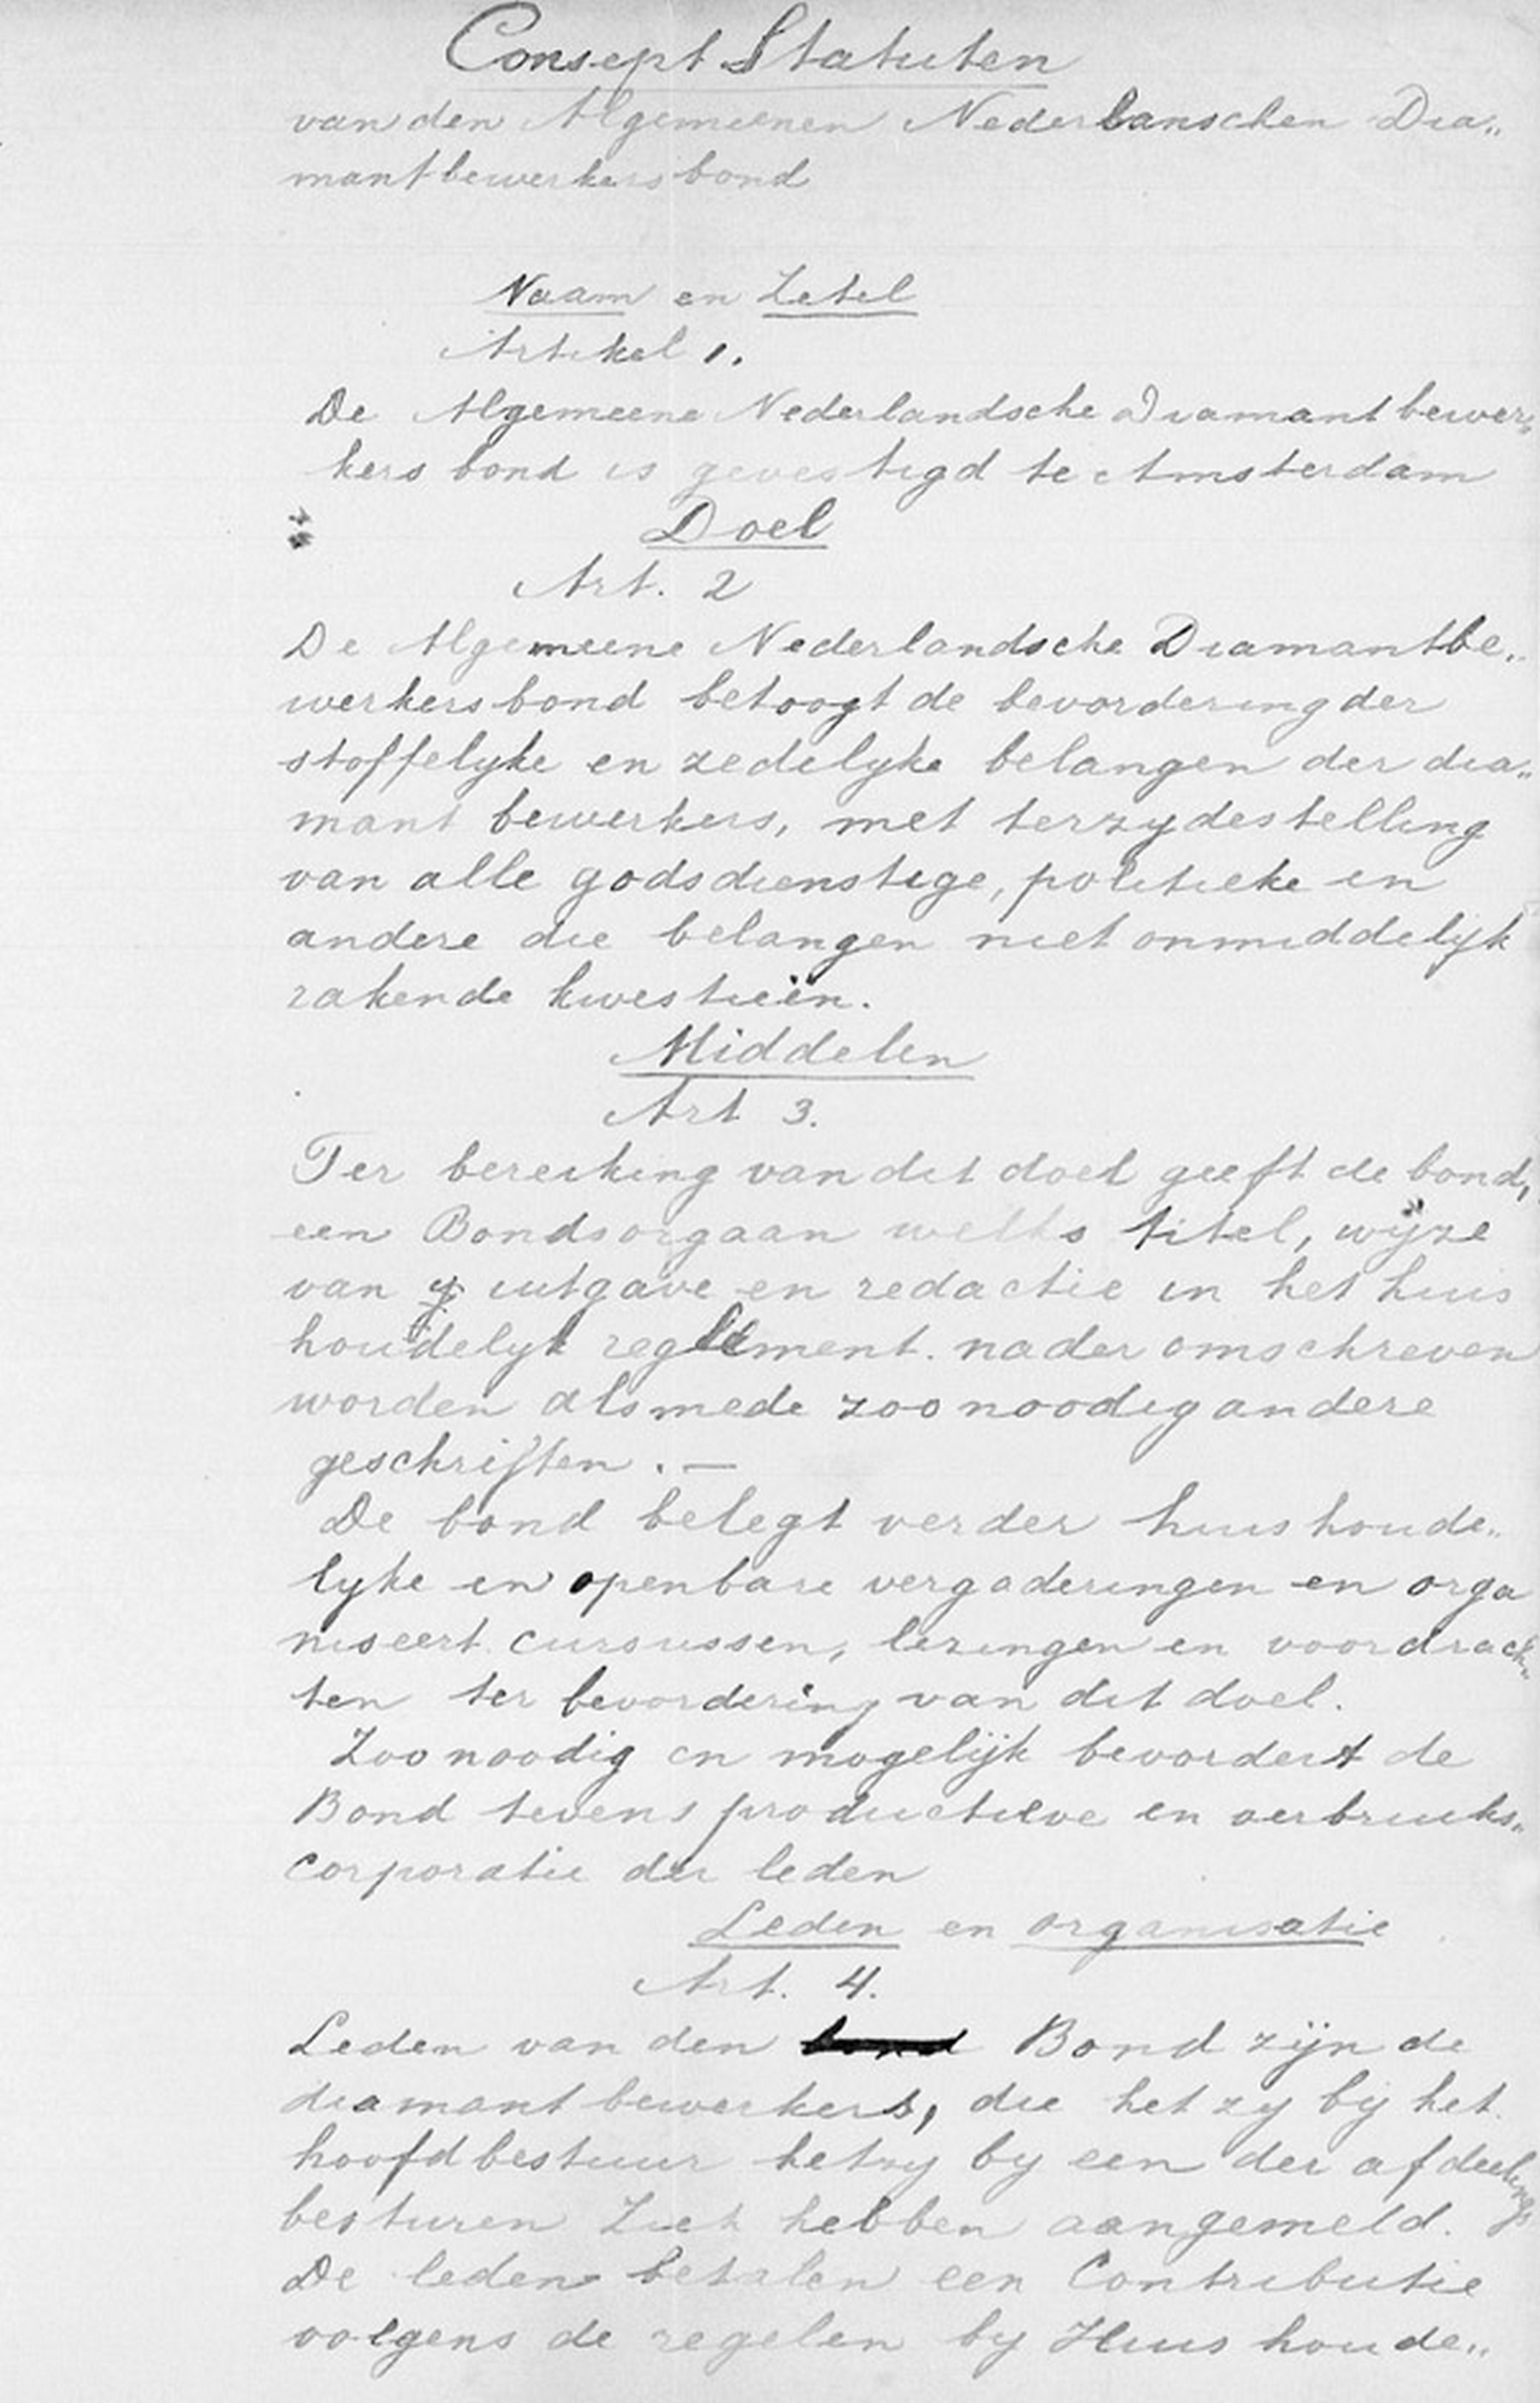 Consept Statuten
van den Algemeenen Nederlanschen Dia„
mantbewerkersbond
Naam en Zetel
Artikel 1.
De Algemeene Nederlandsche Diamantbewer„
kers bond is gevestigd te Amsterdam
Doel
Art. 2
De Algemeene Nederlandsche Diamantbe„
werkersbond betoogt de bevordering der
stoffelyke en zedelyke belangen der dia„
mant bewerkers, met terzydestelling
van alle godsdienstige, politieke en
andere die belangen niet onmiddelijk
rakende kwestieën.
Middelen
Art 3.
Ter bereiking van dit doel geeft de bond,
een Bondsorgaan welks titel, wijze
van uitgave en redactie in het huis
houdelyk reglement. nader omschreven
worden alsmede zoo noodig andere
geschriften. —
De bond belegt verder huishoude„
lyke en openbare vergaderingen en orga
niseert cursussen, lezingen en voordrach„
ten ter bevordering van dit doel.
Zoo noodig en mogelijk bevordert de
Bond tevens productieve en verbruiks„
corporatie der leden
Leden en organisatie
Art. 4.
Leden van den bond Bond zijn de
diamantbewerkers, die het zy by het
hoofdbestuur hetzy by een der afdeelings
besturen Zich hebben aangemeld.
De leden betalen een Contributie
volgens de regelen by Huishoude„